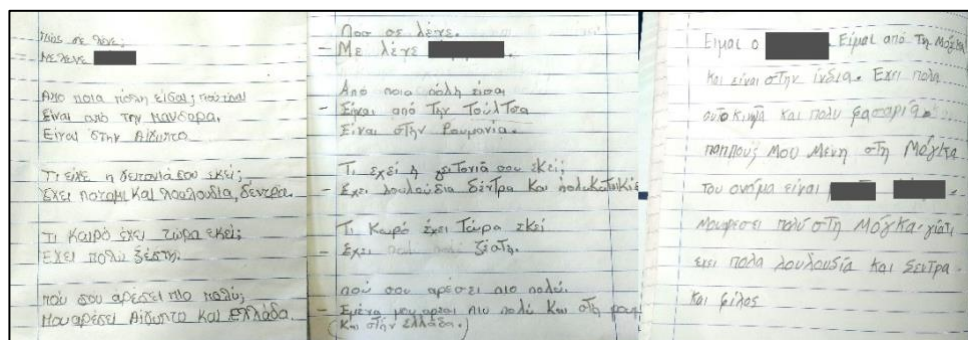 Πώς σε λένε;
Με λένε
Από ποια πόλη είσαι; πού είναι
Είναι από την Μανσορα.
Είναι στην Αίγυπτο
Τι είχε η γειτονιά σου εκεί;
Έχει ποταμι και λουλουδια, δεντρα.
Τι καιρό έχει τώρα εκεί;
Εχει πολύ ζέστη.
πού σου αρέσει πιο πολύ;
Μου αρέσει Αίγυπτο και Ελλάδα.
Ποσ σε λένε.
- Με λένε
Από ποια πόλη είσαι
- Είμαι από την Τούλτσα
Είναι στην Ρουμανία.
Τι έχει η γειτονιά σου εκεί;
- Εχει λουλούδια δέντρα και πολυκατικίε
Τι καιρό έχει τώρα εκεί
- Εχει πολ πολ ζέστη.
πού σου αρέσει πιο πολύ.
- Εμένα μου αρεσι πιο πολύ και στη ρουμ
(και στην ελλάδα.)
Ειμαι ο Είμαι από τη Μόγκα
και είναι στην ίνδια. Εχει πολα
αυτοκινητα και πολυ φασαρία.
παππούς μου μενη στη Μόγκα
του ονόμα είναι
Μουαρεσει πολύ στη Μόγκα γιατι
εχει πολα λουλουδία και δεντρα
και φίλος